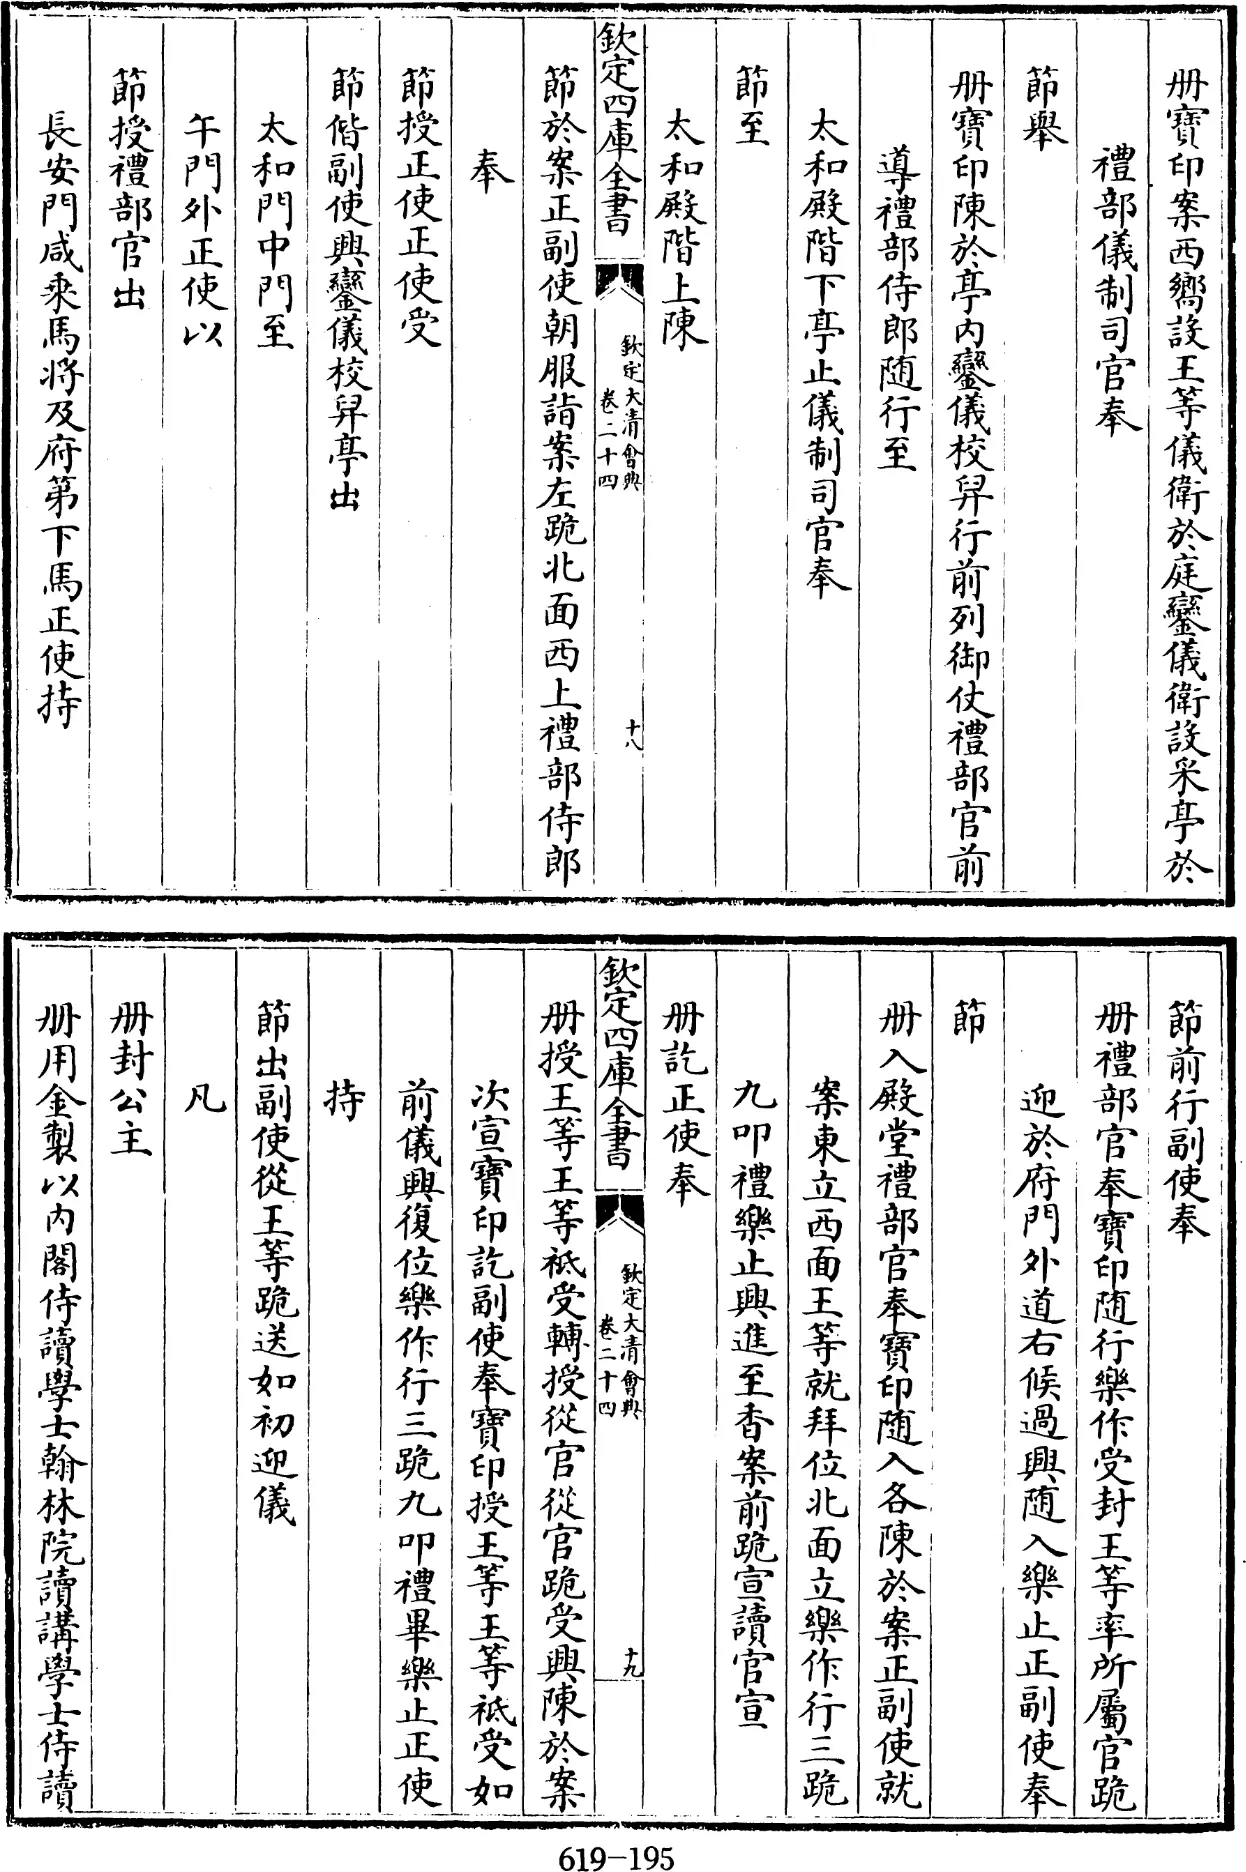 册寶印案西嚮設王等儀衛於庭鑾儀衛設采亭於
禮部儀制司官奉
節舉
册寶印陳於亭内鑾儀校舁行前列御仗禮部官前
導禮部侍郎随行至
太和殿階下亭止儀制司官奉
節至
太和殿階上陳
欽定四庫全書
欽定大清會典
卷二十四
十八
節於案正副使朝服詣案左跪北面西上禮部侍郎
奉
節授正使正使受
節偕副使興鑾儀校舁亭出
太和門中門至
午門外正使以
節授禮部官出
長安門咸乘馬將及府第下馬正使持
節前行副使奉
册禮部官奉寶印随行樂作受封王等率所屬官跪
迎於府門外道右候過興随入樂止正副使奉
節
册入殿堂禮部官奉寶印随入各陳於案正副使就
案東立西面王等就拜位北面立樂作行三跪
九叩禮樂止興進至香案前跪宣讀官宣
册訖正使奉
欽定四庫全書
欽定大清會典
卷二十四
十九
册授王等王等祇受轉授從官從官跪受興陳於案
次宣寶印訖副使奉寶印授王等王等祇受如
前儀興復位樂作行三跪九叩禮畢樂止正使
持
節出副使從王等跪送如初迎儀
凡
册封公主
册用金製以内閣侍讀學士翰林院讀講學士侍讀
619-195